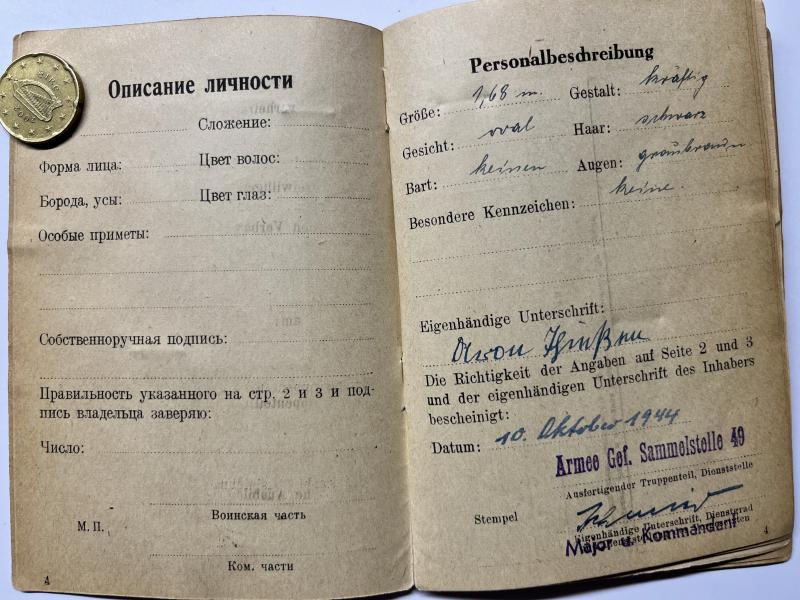 ÉIRE
2002
Описание личности
Сложение:
Форма лица: Цвет волос:
Борода, усы: Цвет глаз:
Особые приметы:
Собственноручная подпись:
Правильность указанного на стр. 2 и 3 и под-
пись владельца заверяю:
Число:
Воинская часть
М. П.
Ком. части
4
Personalbeschreibung
Größe: 1,68 m. Gestalt: kräftig
Gesicht: oval Haar: schwarz
Bart: keinen Augen: graubraun
Besondere Kennzeichen: keine.
Eigenhändige Unterschrift:
Die Richtigkeit der Angaben auf Seite 2 und 3
und der eigenhändigen Unterschrift des Inhabers
bescheinigt:
Datum: 10. Oktober 1944
Armee Gef. Sammelstelle 49
Ausfertigender Truppenteil, Dienststelle
Stempel
Eigenhändige Unterschrift, Dienstgrad
Major u. Kommandant
4